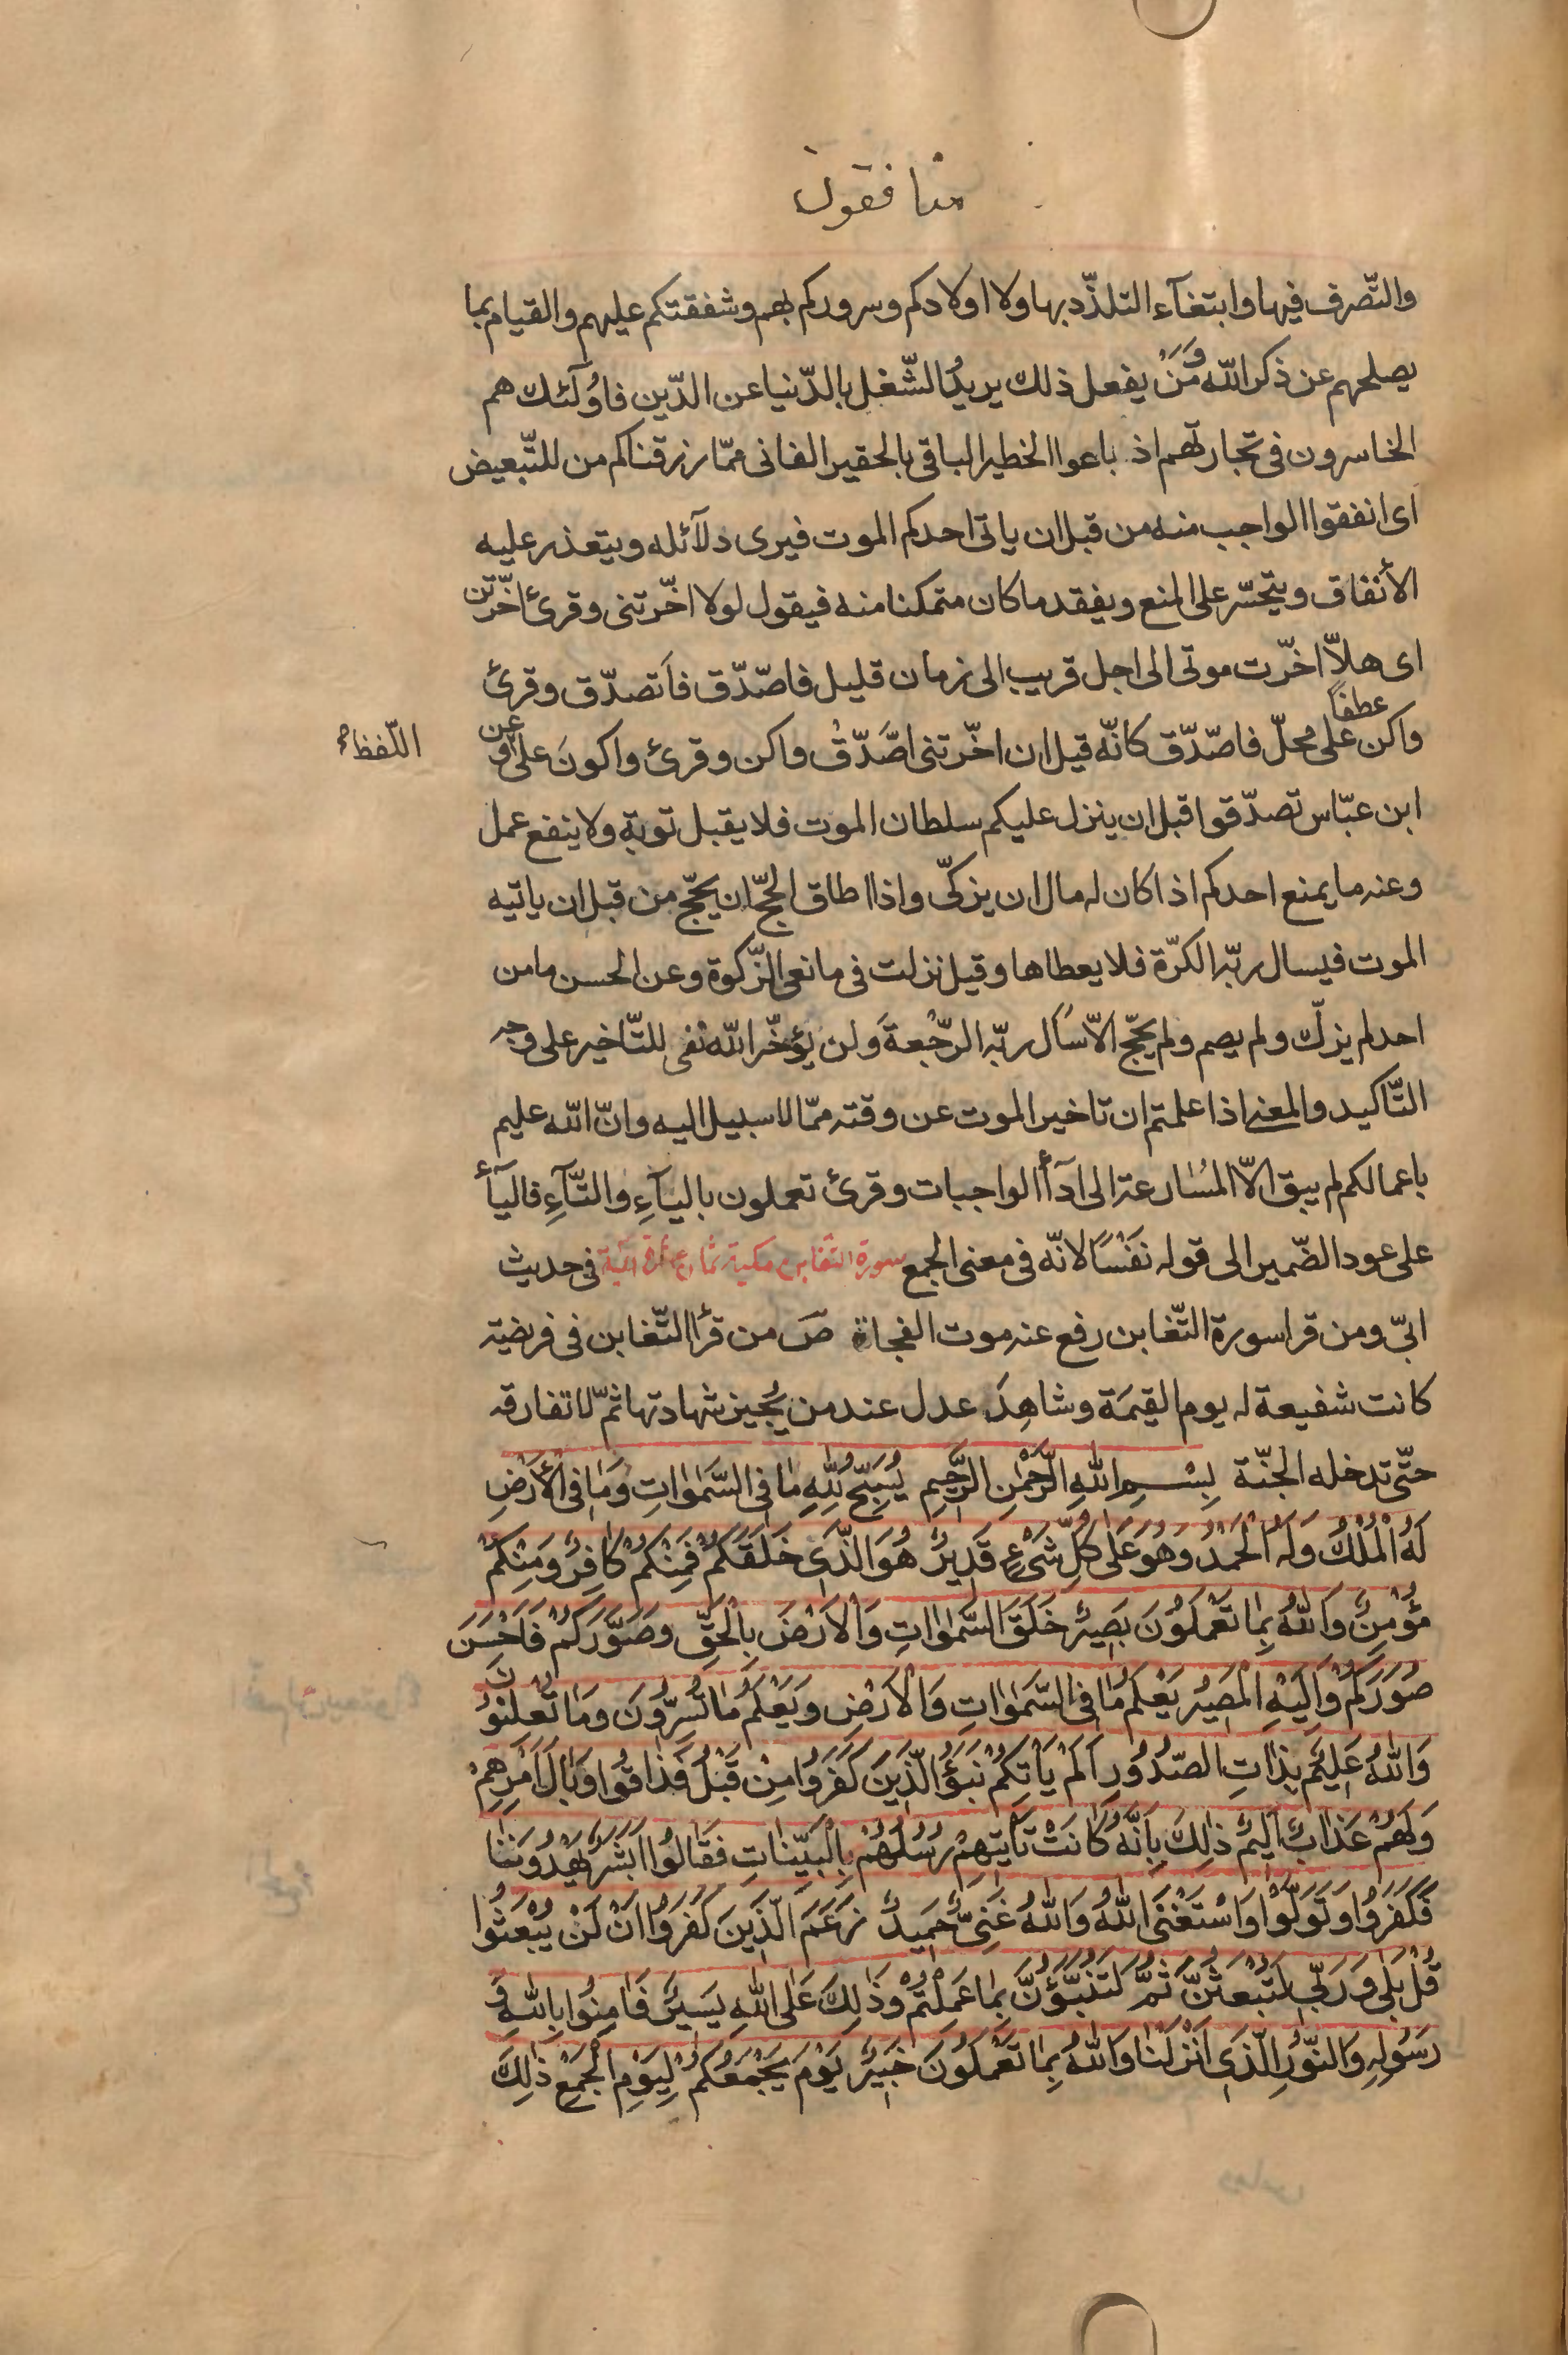 منافقون
والتّصرف فيها وابتغآء التلذّد بها ولا اولادكم وسروركم بهم وشفقتكم عليهم والقيام بما
يصلحهم عن ذكر الله وَمَنْ يفعل ذلك يريدُ الشّغل بالدّنيا عن الدّين فاوُلٓئك هم
الخاسرون فى تجارتهم اذ باعوا الخطير الباقى بالحقير الفانى ممّا رزقناكم من للتّبعيض
اى انفقوا الواجب منه من قبل ان ياتى احدكم الموت فيرى دلآئله ويتعذر عليه
الأنفاق ويتحسّر على المنع ويفقد ما كان متمكنا منه فيقول لولا اخّرتنى وقرئ اخّرتن
اى هلاّ اخّرت موتى الى اجل قريب الى زمان قليل فاصّدّق فاَتصدّق وقرئ
واكن عطفاً على محلّ فاصّدّق كانّه قيل ان اخّرتنى اصَّدّقْ واكن وقرئ واكونَ على وعن
اللّفظ صح
ابن عبّاس تصدّقوا قبل ان ينزل عليكم سلطان الموت فلا يقبل توبة ولا ينفع عمل
وعنه ما يمنع احدكم اذا كان له مال ان يزكّى واذا اطاق الحجّ ان يحجّ من قبل ان ياتيه
الموت فيسال ربّه الكرّة فلا يعطاها وقيل نزلت فى مانعى الزّكوة وعن الحسن ما من
احد لم يزكّ ولم يصم ولم يحجّ الاّ سأل ربّه الرّجْعةَ ولن يؤخّر الله نفى للتّاخير على وجه
التّاكيد والمعنى اذا علمتم ان تاخير الموت عن وقته ممّا لا سبيل اليه وانّ الله عليم
باعمالكم لم يبق الاّ المسُارعة الى ادآأ الواجبات وقرئ تعملون باليآءِ والتّآءِ فاليآأ
على عود الضّمير الى قوله نفَسًْا لانّه فى معنى الجمع سورة التغابن مكية ثمان عشرة اية فى حديث
ابىّ ومن قرا سورة التّغابن رفع عنه موت الفجاة صَ من قرأ التّغابن فى فريضته
كانت شفيعة له يوم القيمَة وشاهِدَ عدل عند من يُجيز شهادتها ثمّ لا تفارقه
حتّى تدخله الجنّة بِسْمِ اللّٰهِ الرَّحْمٰنِ الرَّحيمِ يُسَبِّحُ لِلّٰهِ مٰا فِى السَّمٰوٰاتِ وَمٰا فِى الْأَرْضِ
لَهُ الْمُلْكُ وَلَهُ الْحَمْدُ وَهُوَ عَلٰى كُلِّ شَىْءٍ قَدِيرٌ هُوَ الَّذِى خَلَقَكُمْ فَمِنْكُمْ كٰافِرٌ وَمِنْكُمْ
مُؤْمِنٌ وَاللّٰهُ بِمٰا تَعْمَلُونَ بَصِيرٌ خَلَقَ السَّمٰوٰاتِ وَالْاَرْضَ بِالْحَقِّ وَصَوَّرَكُمْ فَاَحْسَنَ
صُوَرَكُمْ وَاِلَيْهِ الْمَصِيرُ يَعْلَمُ مٰا فِى السَّمٰوٰاتِ وَالْاَرْضِ وَيَعْلَمُ مٰا تُسِرُّونَ وَمٰا تُعْلِنُونَ
وَاللّٰهُ عَلِيمٌ بِذٰاتِ الصُّدُورِ اَلَمْ يَأْتِكُمْ نَبَؤُا الَّذِينَ كَفَرُوا مِنْ قَبْلُ فَذٰاقُوا وَبٰالَ اَمْرِهِمْ
وَلَهُمْ عَذٰابٌ اَلِيمٌ ذٰلِكَ بِاَنَّهُ كٰانَتْ تَأْتِيهِمْ رُسُلُهُمْ بِالْبَيِّنٰاتِ فَقٰالُوا اَبَشَرٌ يَهْدُونَنٰا
فَكَفَرُوا وَتَوَلَّوْا وَاسْتَغْنَى اللّٰهُ وَاللّٰهُ غَنِىٌّ حَمِيدٌ زَعَمَ الَّذِينَ كَفَرُوا اَنْ لَنْ يُبْعَثُوا
قُلْ بَلٰى وَرَبِّى لَتُبْعَثُنَّ ثُمَّ لَتُنَبَّؤُنَّ بِمٰا عَمِلْتُمْ وَذٰلِكَ عَلَى اللّٰهِ يَسِيرٌ فَاٰمِنُوا بِاللّٰهِ وَ
رَسُولِهِ وَالنُّورِ الَّذِى اَنْزَلْنٰا وَاللّٰهُ بِمٰا تَعْمَلُونَ خَبِيرٌ يَوْمَ يَجْمَعُكُمْ لِيَوْمِ الْجَمْعِ ذٰلِكَ